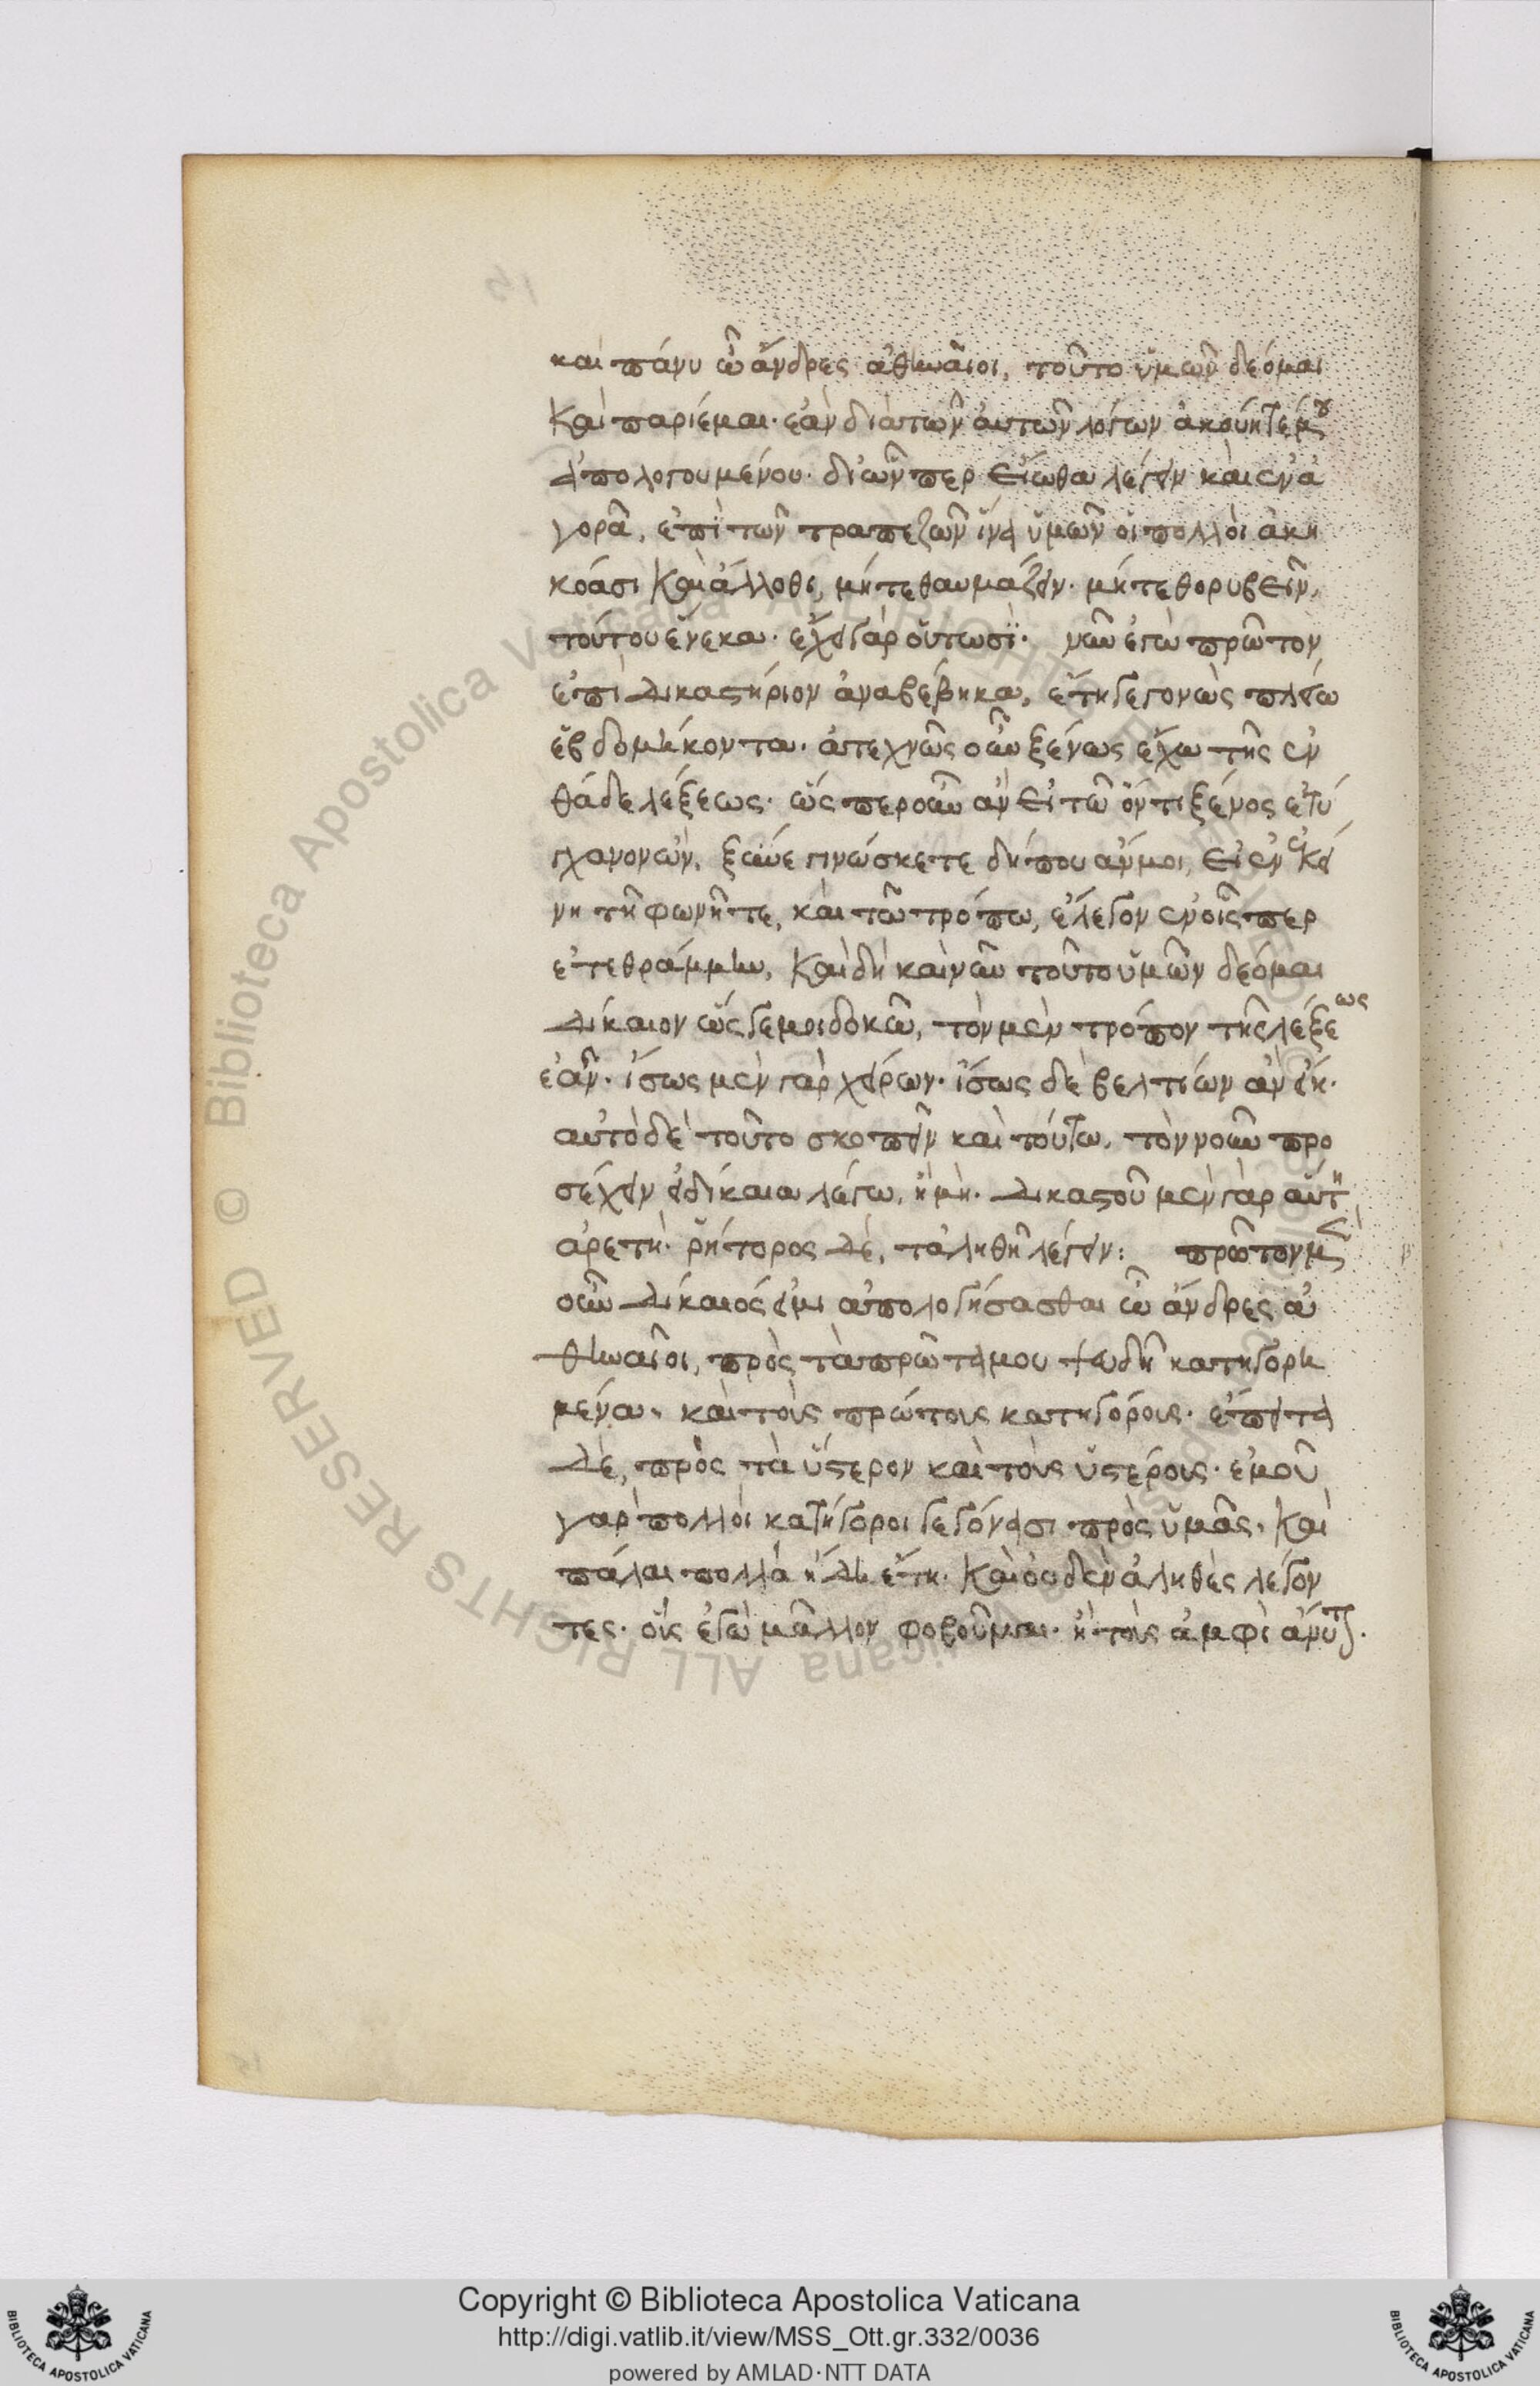 καὶ πάνυ ὦ ἄνδρες ἀθηναῖοι, τοῦτο ὑμῶν δεόμαι
καὶ παρίεμαι· ἐὰν διὰ τῶν ἀυτῶν λόγων ἀκούητέ μου
ἀπολογουμένου· δι ὧν περ εἴωθα λέγειν καὶ ἐν ἀ
γορᾶ, ἐπὶ τῶν τραπεζῶν ἵνα ὑμῶν οἱ πολλοὶ ἀκη
κόασι καὶ ἄλλοθι, μήτε θαυμάζειν· μήτε θορυβεῖν,
τούτου ἕνεκα· ἔχει γὰρ οὕτωσϊ· νῦν ἐγὼ πρῶτον
ἐπὶ δικαστήριον ἀναβέβηκα, ἔτη γεγονὼς πλείω
ἑβδομήκοντα· ἀτεχνῶς οὖν ξένως ἔχω τῆς ἐν
θάδε λέξεως· ὥς περ οὖν ἂν εἰ τῶ ὄντι ξένος ἐτύ
γχανον ὢν, ξυνε γινώσκετε δήπου ἄν μοι, εἰ ἐν ἐκεί
νη τῆ φωνῆ τε, καὶ τῶ τρόπω, ἔλεγον ἐν οἷς περ
ἐτεθράμμην, καὶ δὴ καὶ νῦν τοῦτο ὑμῶν δεόμαι
δίκαιον ὥς γε μοι δοκῶ, τὸν μὲν τρόπον τῆς λέξεως
ἐᾶν· ἴσως μὲν γὰρ χείρων· ἴσως δὲ βελτιών ἂν εἴη·
αὐτὸ δὲ τοῦτο σκοπεῖν καὶ τούτω, τὸν νοῦν προ
σέχειν εἰ δίκαια λέγω, ἢ μὴ· δικαστοῦ μὲν γὰρ αὕτη
ἀρετὴ· ῥήτορος δὲ, τἀληθῆ λέγειν: πρῶτον μὲν
οὖν δίκαιός εἰμι ἀπολογήσασθαι ὦ ἄνδρες ἀ
θηναῖοι, πρὸς τὰ πρῶτά μου ψευδῆ κατηγορη
μένα, καὶ τοὺς πρώτους κατηγόρους· ἔπειτα
δὲ, πρὸς τὰ ὕστερον καὶ τοὺς ὑστέρους· ἐμοῦ
γὰρ πολλοὶ κατήγοροι γεγόνασι πρὸς ὑμᾶς, καὶ
πάλαι πολλὰ ἤδη ἔτη· καὶ οὐδὲν ἀληθὲς λέγον
τες· οὓς ἐγὼ μᾶλλον φοβοῦμαι· ἢ τοὺς ἀμφὶ ἄνυτον·
Copyright © Biblioteca Apostolica Vaticana
http://digi.vatlib.it/view/MSS_Ott.gr.332/0036
powered by AMLAD·NTT DATA